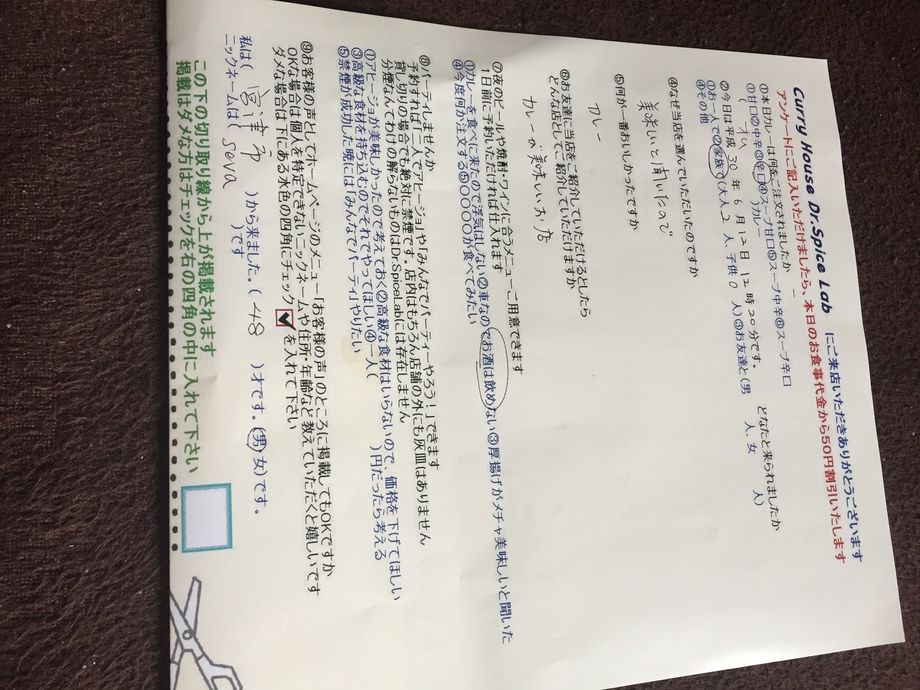 Curry House Dr.Spice Lab にご来店いただきありがとうございます
アンケートにご記入いただけましたら、本日のお食事代金から50円割引いたします
①本日カレーは何をご注文されましたか
①甘口②中辛③辛口④スープ甘口⑤スープ中辛⑥スープ辛口
( )カレー
②今日は平成 30 年 6 月 12 日 12 時 20 分です。 どなたと来られましたか
①お一人で②家族で(大人 2 人、子供 0 人)③お友達と(男 人、女 人)
④その他
④なぜ当店を選んでいただいたのですか
美味いと聞いたので
⑤何が一番おいしかったですか
カレー
⑥お友達に当店をご紹介していただけるとしたら
どんな店としてご紹介していただけますか
カレーの美味いお店
⑦夜のビールや焼酎・ワインに合うメニューご用意できます
1日前に予約いただければ仕入れます
①カレーを食べに来たので浮気はしない②車なのでお酒は飲めない③厚揚げがメチャ美味しいと聞いた
④今度何か注文する⑤〇〇〇〇が食べてみたい
⑧パーティしませんか
予約すれば「一人でアヒージョ」や「みんなでパーティーやろう!」できます
貸し切りの場合でも絶対に禁煙です。店内はもちろん店舗の外にも灰皿はありません
分煙なんてわけの解らないものはDr.SpiceLabには存在しません
①アヒージョが美味しかったので考えておく②高級な食材はいらないので、価格を下げてほしい
③高級な食材を持ち込むのでそれでやってほしい④一人( )円だったら考える
⑤禁煙が成功した暁には「みんなでパーティ」やりたい
⑨お客様の声としてホームページのメニュー「お客様の声」のところに掲載してもOKですか
OKな場合は個人を特定できないニックネームや住所・年齢など教えていただくと嬉しいです
ダメな場合は下にある水色の四角にチェック✓を入れて下さい
私は( 宮津市 )から来ました。( 48 )才です。(男・女)です。
ニックネームは( Sova )です
この下の切り取り線から上が掲載されます
掲載はダメな方はチェックを右の四角の中に入れて下さい